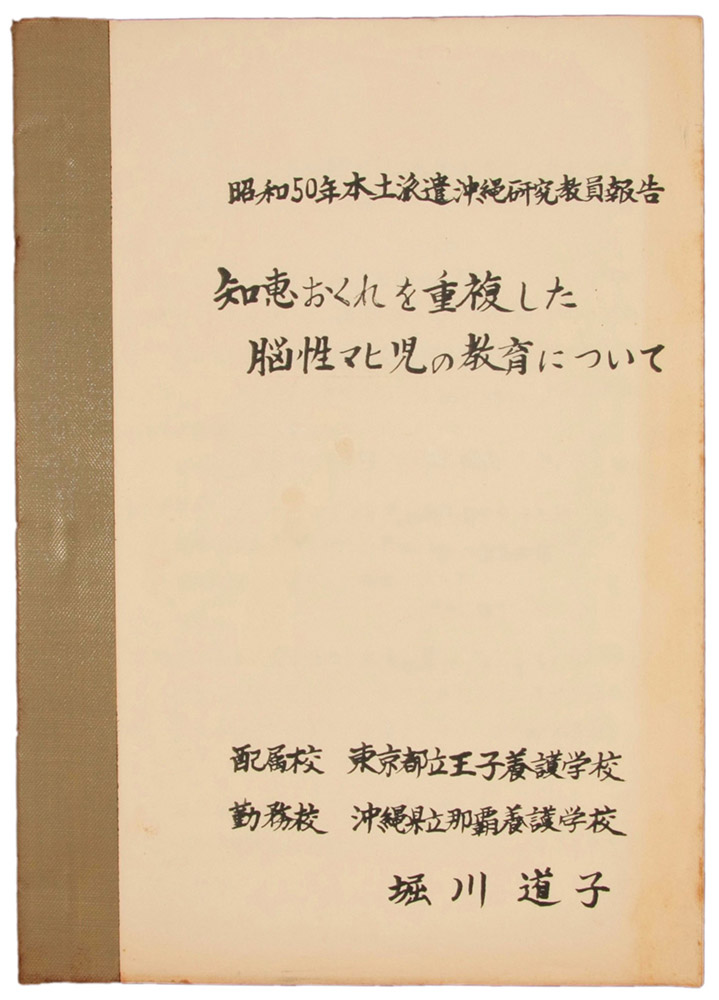 昭和50年本土派遣沖縄研究教員報告
知恵おくれを重複した
脳性マヒ児の教育について
配属校 東京都立王子養護学校
勤務校 沖縄県立那覇養護学校
堀川道子